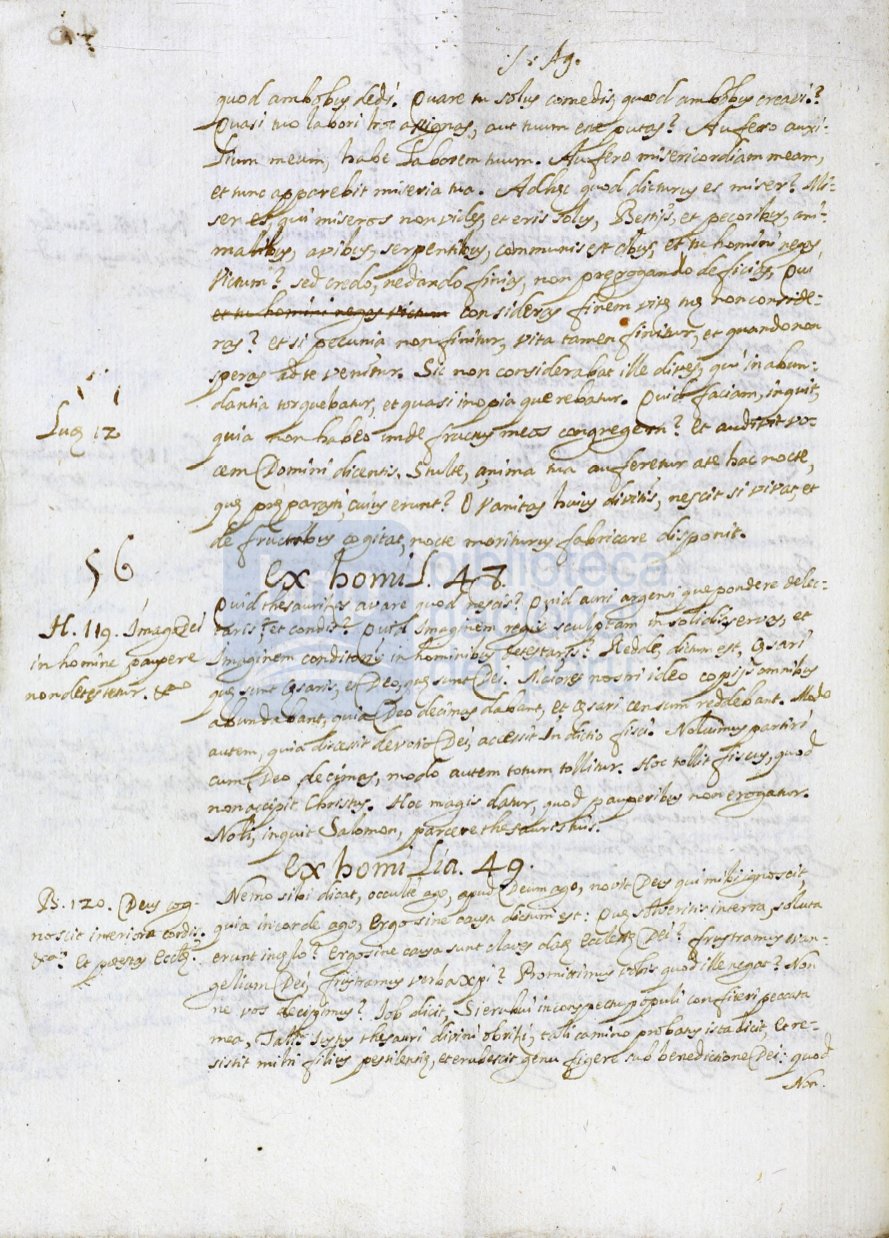 S. Ag.
quod ambobus dedi. Quare tu solus comedis, quod ambobus creavi?
Quasi tuo labori hoc assignas, aut tuum esse putas? Aufero auxi-
lium meum, habe Laborem tuum. Aufero misericordiam meam,
et tunc apparebit miseria tua. Adhuc quod dicturus es miser? Mi-
ser es, qui miseros non vides, et eris solus, Bestijs, et pecoribus, ani-
malibus, avibus, serpentibus, communis est cibus, et tu homini negas
victum? sed credo, ne dando finias, non prerogando deficis, Qui
et tu homini negas victum consideras finem vitę tuę non conside-
ras? et si pecunia non finitur, vita tamen finitur, et quando non
speras ad te venitur. Sic non considerabat ille dives, qui in abun-
dantia torquebatur, et quasi inopia querebatur. Quid faciam, inquit,
quia non habeo unde fructus meos congregem? Et audivit vo-
cem Domini dicentis. Stulte, anima tua auferetur a te hac nocte,
quę pręparasti, cuius erunt? O vanitas huius divitis, nescit si vivat, et
de fructibus cogitat, nocte moriturus fabricare disponit.
Lucę 12
56
ex homil. 48.
Quid thesaurizas avare quod nescis? Quid auri argenti que pondere delec-
taris? et condis? Quid Imaginem regis sculptam in solidis, servas, et
Imaginem conditoris in hominibus detestaris? Reddite, dictum est, Cęsari
quę sunt Cęsaris, et Deo, quę sunt Dei. Maiores nostri ideo copijs omnibus
abundabant, quia Deo decimas dabant, et cęsari censum reddebant. Modo
autem, quia discessit devotio Dei, accessit in dictio fisci. Noluimus partiri
cum Deo decimas, modo autem totum tollitur. Hoc tollit fiscus, quod
non accipit Christus. Hoc magis datur, quod pauperibus non erogatur.
Noli, inquit Salomon, parcere thesauris tuis.
H. 119. Imago Dei
in homine paupere
non detestetur. &c
ex homilia. 49.
Nemo sibi dicat, occulte ago, apud Deum ago, novit Deus qui mihi ignoscit
quia in corde ago, Ergo sine causa dictum est: Quę solveritis in terra, soluta
erunt in cęlo? Ergo sine causa sunt claves datę Ecclesię Dei? frustramus evan-
gelium Dei, frustramus verba xpi? Promittimus vobis quod ille negat? Non
ne vos decipimus? Job dicit, Si erubui in conspectu populi confiteri peccata
mea, Talis Justus thesauri divini obrizi, tali camino probatus ista dicit, et re-
sistit mihi filius pestilentię, et erubescit genu figere sub benedictione Dei: quod
Non.
B. 120. Deus cog-
noscit interiora cordis.
&ca. Et potestas Eccłę.